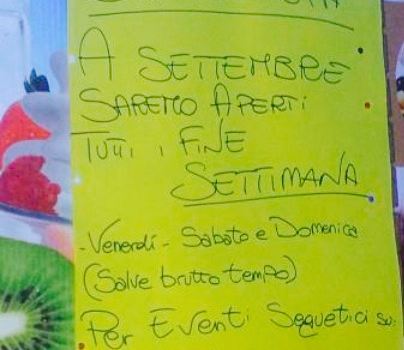 A SETTEMBRE
SAREMO APERTi
TUTTi i FiNE
SETTIMANA
- Venerdí - Sabato e Domenica
(Salve brutto tempo)
Per Eventi Seguetici su: